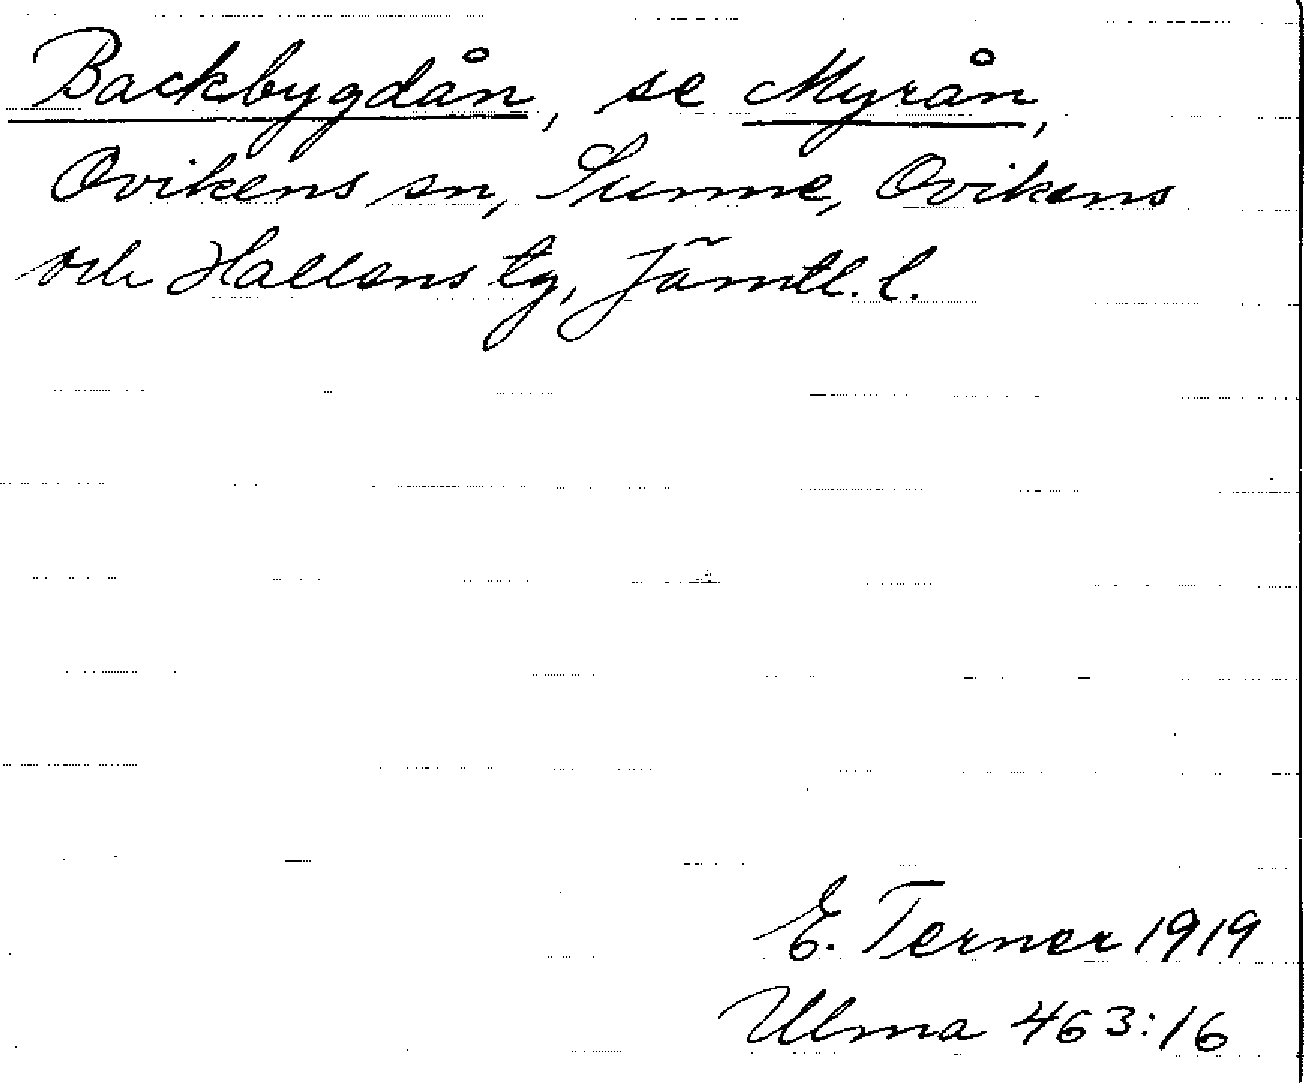 Backbygdån, se Myrån,
Ovikens sn, Sunne, Ovikens
och Hallens tg, Jämtl. l.
E. Terner 1919
Ulma 463:16